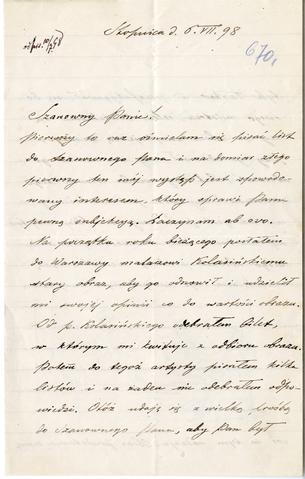 Stopnica d. 6. VII. 98
odpis. 10/7 98
670,
Szanowny Panie!
Pierwszy to raz ośmielam się pisać list
do Szanownego Pana i na domiar złego
pierwszy ten mój występ jest spowodo-
wany interesem, który sprawi Panu
pewną subjekcyą. Zaczynam ab ovo.
Na początku roku bieżącego posłałem
do Warszawy malarzowi Kolasińskiemu
stary obraz, aby go odnowił i udzielił
mi swojej opinii co do wartości obrazu.
Od p. Kolasińskiego odebrałem bilet,
w którym mi kwituje z odbioru obrazu.
Potem do tegoż artysty pisałem kilka
listów i na żaden nie odebrałem odpo-
wiedzi. Otóż udaję się z wielką prośbą
do Szanownego Pana, aby Pan był